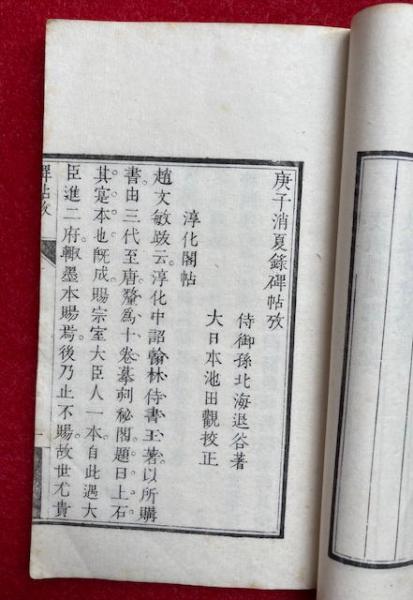 庚子消夏錄碑帖攷
侍御孫北海退谷著
大日本池田觀挍正
淳化閣帖
趙文敏跋云。淳化中詔翰林侍書王著以所購
書由三代至唐釐爲十卷摹刺秘閣。題曰上石。
其寔本也。旣成賜宗室大臣人一本自此遇大
臣進二府輙墨本賜焉。後乃止不賜。故世尤貴
碑帖攷
一